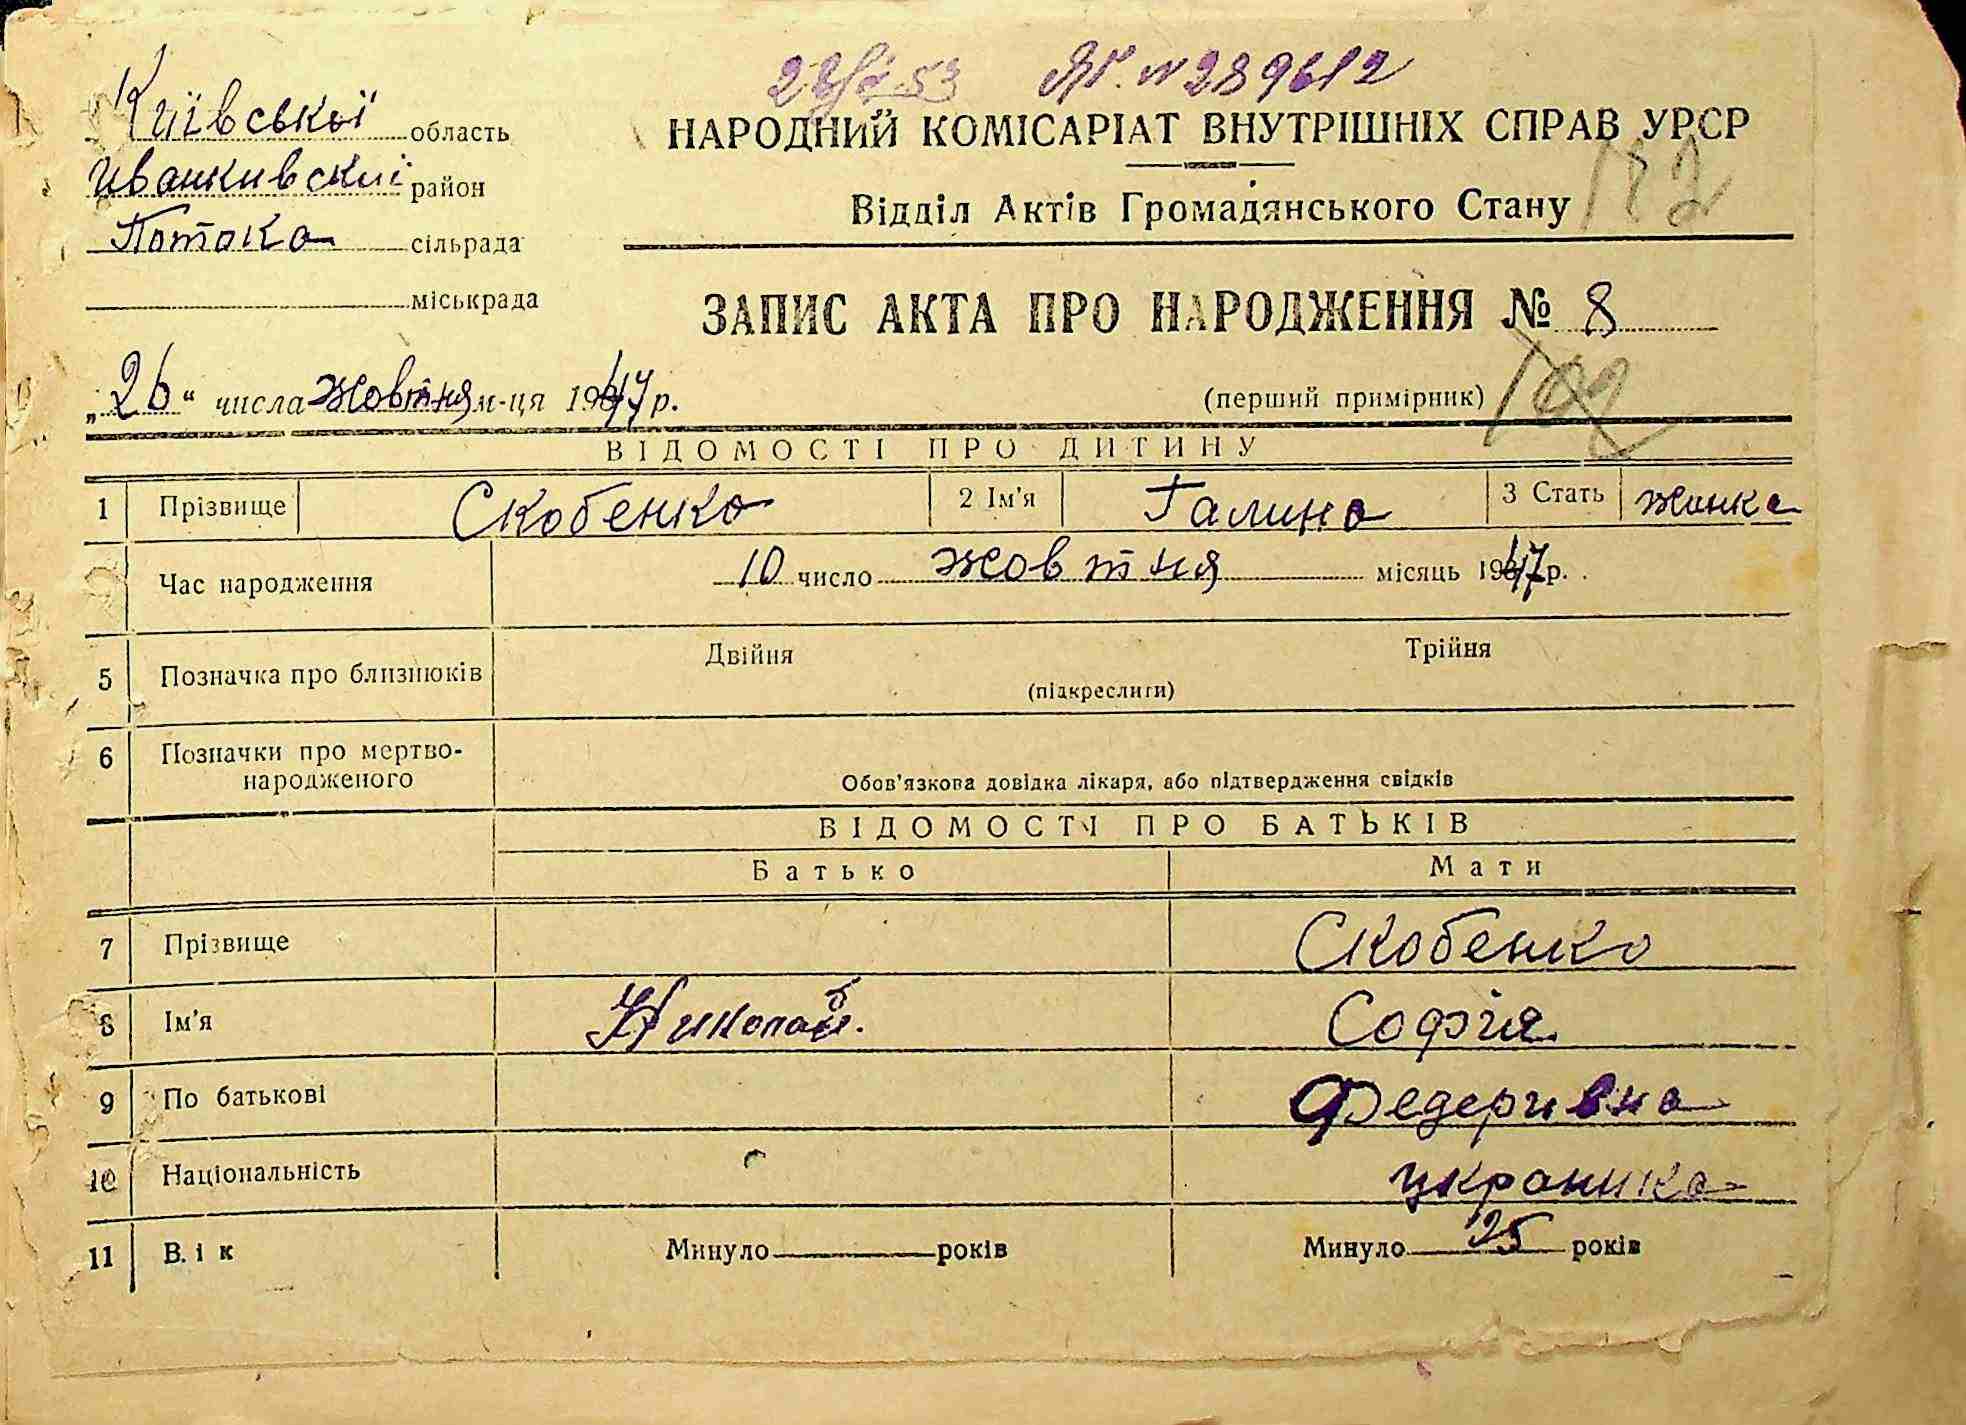 ЯГ. № 289612
Київської область
Иванкивский район
Потока сільрада
міськрада
НАРОДНИЙ КОМІСАРІАТ ВНУТРІШНІХ СПРАВ УРСР
Відділ Актів Громадянського Стану
182
ЗАПИС АКТА ПРО НАРОДЖЕННЯ № 8
„26" числа жовтня м-ця 1947 р.
(перший примірник)
ВІДОМОСТІ ПРО ДИТИНУ
1 Прізвище Скобенко 2 Ім'я Галина 3 Стать жинка
Час народження 10 число жовтня місяць 1947 р.
5 Позначка про близнюків Двійня Трійня
(підкреслити)
6 Позначки про мертво-
народженого
Обов'язкова довідка лікаря, або підтвердження свідків
ВІДОМОСТІ ПРО БАТЬКІВ
Батько Мати
7 Прізвище Скобенко
8 Ім'я Николай. Софія
9 По батькові Федеривна
10 Національність украинка
11 Вік Минуло років Минуло 25 років